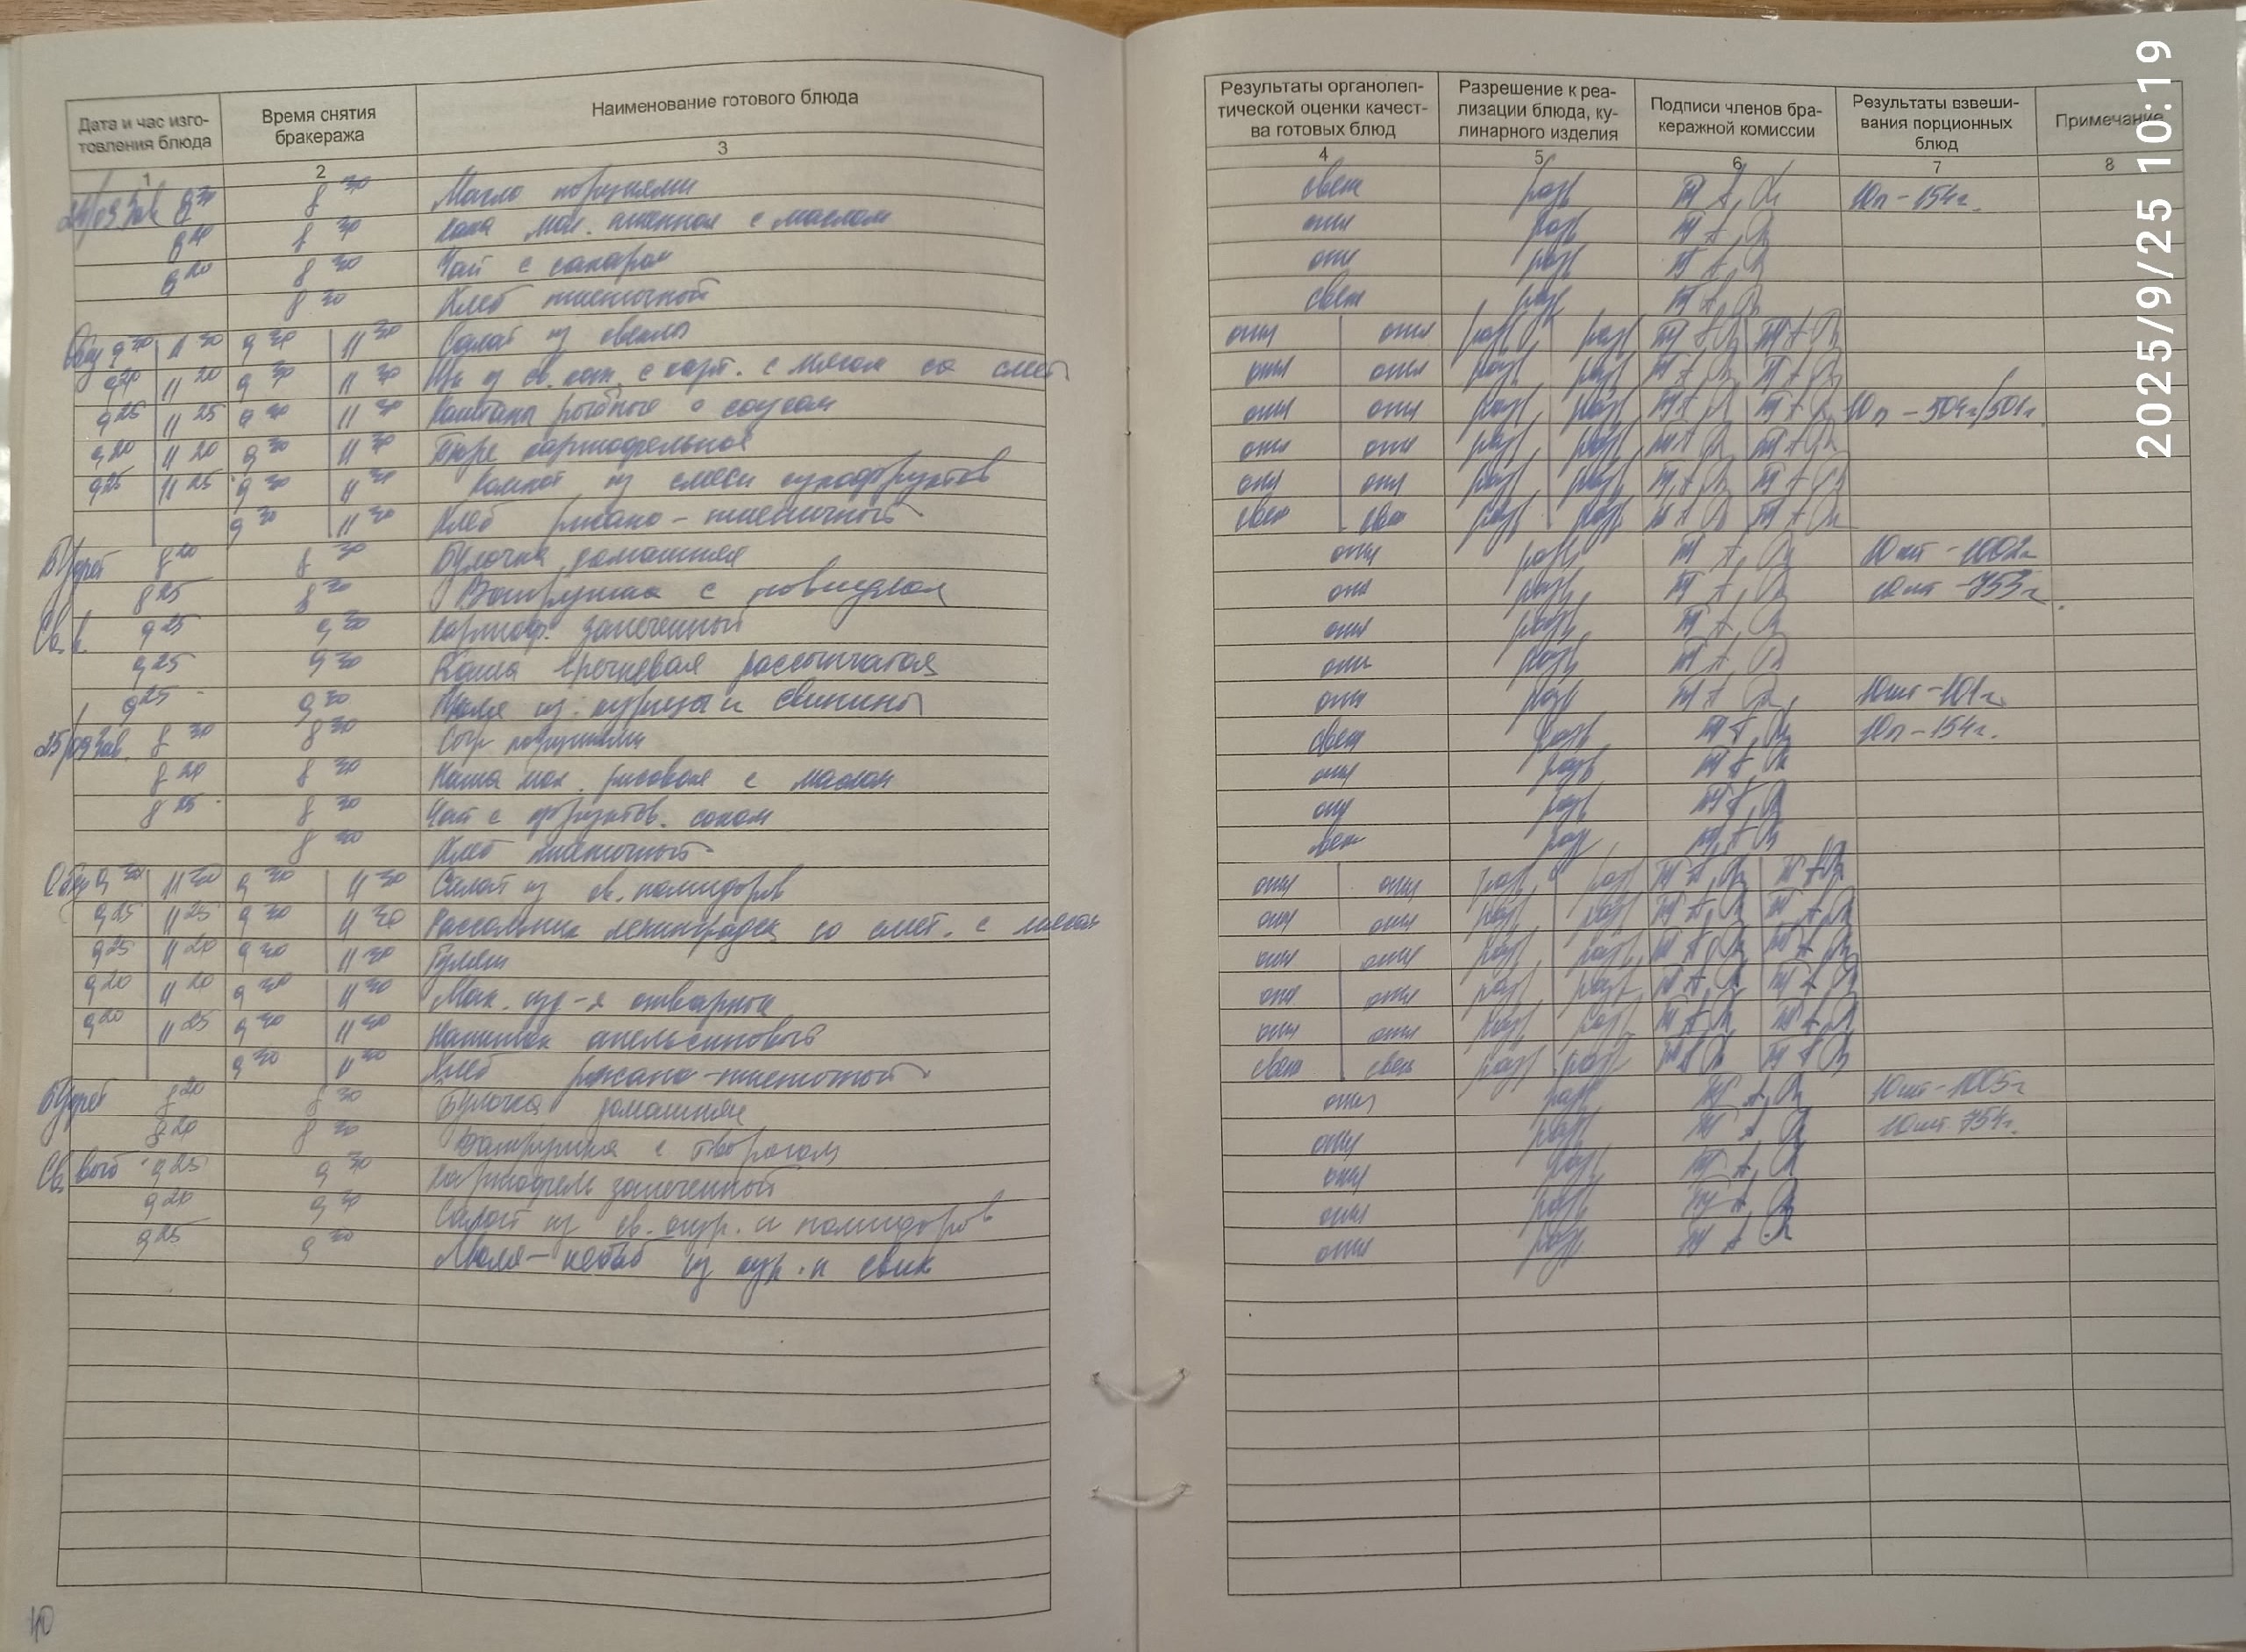 Дата и час изго-
товления блюда
Время снятия
бракеража
Наименование готового блюда
1 2 3
24/09 Зав 8 30 8 30 Масло порциями
8 20 8 30 Каша мол. пшенная с маслом
8 20 8 30 Чай с сахаром
8 30 Хлеб пшеничный
Обед 9 30 11 30 9 30 11 30 Салат из свеклы
9 20 11 20 9 30 11 30 Щи из св. кап. с карт. с мясом со смет
9 25 11 25 9 30 11 30 рыбные с соусом
9 20 11 20 9 30 11 30 Пюре картофельное
9 25 11 25 9 30 11 30 Компот из смеси сухофруктов
9 30 11 30 Хлеб ржано-пшеничный
Буфет 8 20 8 30 Булочка домашняя
8 25 8 30 Ватрушка с повидлом
Св. 9 25 9 30 Картоф. запеченный
9 25 9 30 Каша гречневая рассыпчатая
9 25 9 30 из курицы и свинины
25/09 Зав. 8 30 8 30 Сыр порциями
8 20 8 30 Каша мол. рисовая с маслом
8 25 8 30 Чай с фруктов. соком
8 30 Хлеб пшеничный
Обед 9 30 11 30 9 30 11 30 Салат из св. помидоров
9 25 11 25 9 30 11 30 Рассольник ленинградск со смет. с мясом
9 25 11 20 9 30 11 30 Гуляш
9 20 11 20 9 30 11 30 Мак. изд-я отварные
9 20 11 25 9 30 11 30 Напиток апельсиновый
9 30 11 30 Хлеб ржано-пшеничный
Буфет 8 20 8 30 Булочка домашняя
8 20 8 30 Ватрушка с творогом
9 25 9 30 Картофель запеченный
9 20 9 30 Салат из св. огур. и помидоров
9 25 9 30 Люля-кебаб из кур. и свин
40
Результаты органолеп-
тической оценки качест-
ва готовых блюд
Разрешение к реа-
лизации блюда, ку-
линарного изделия
Подписи членов бра-
керажной комиссии
Результаты взвеши-
вания порционных
блюд
Примечание
4 5 6 7 8
свеж разр 10п-154г.
отл разр
отл разр
свеж разр
отл отл разр разр
отл отл разр разр
отл отл разр разр 10п-504г/501г.
отл отл разр разр
отл отл разр разр
свеж свеж разр разр
отл разр 10шт-1002г
отл разр 10шт-753г.
отл разр
отл разр
отл разр 10шт-101г.
свеж разр 10п-154г.
отл разр
отл разр
свеж разр
отл отл разр разр
отл отл разр разр
отл отл разр разр
отл отл разр разр
отл отл разр разр
свеж свеж разр разр
отл разр 10шт-1005г
отл разр 10шт 754г.
отл разр
отл разр
отл разр
2025/9/25 10:19